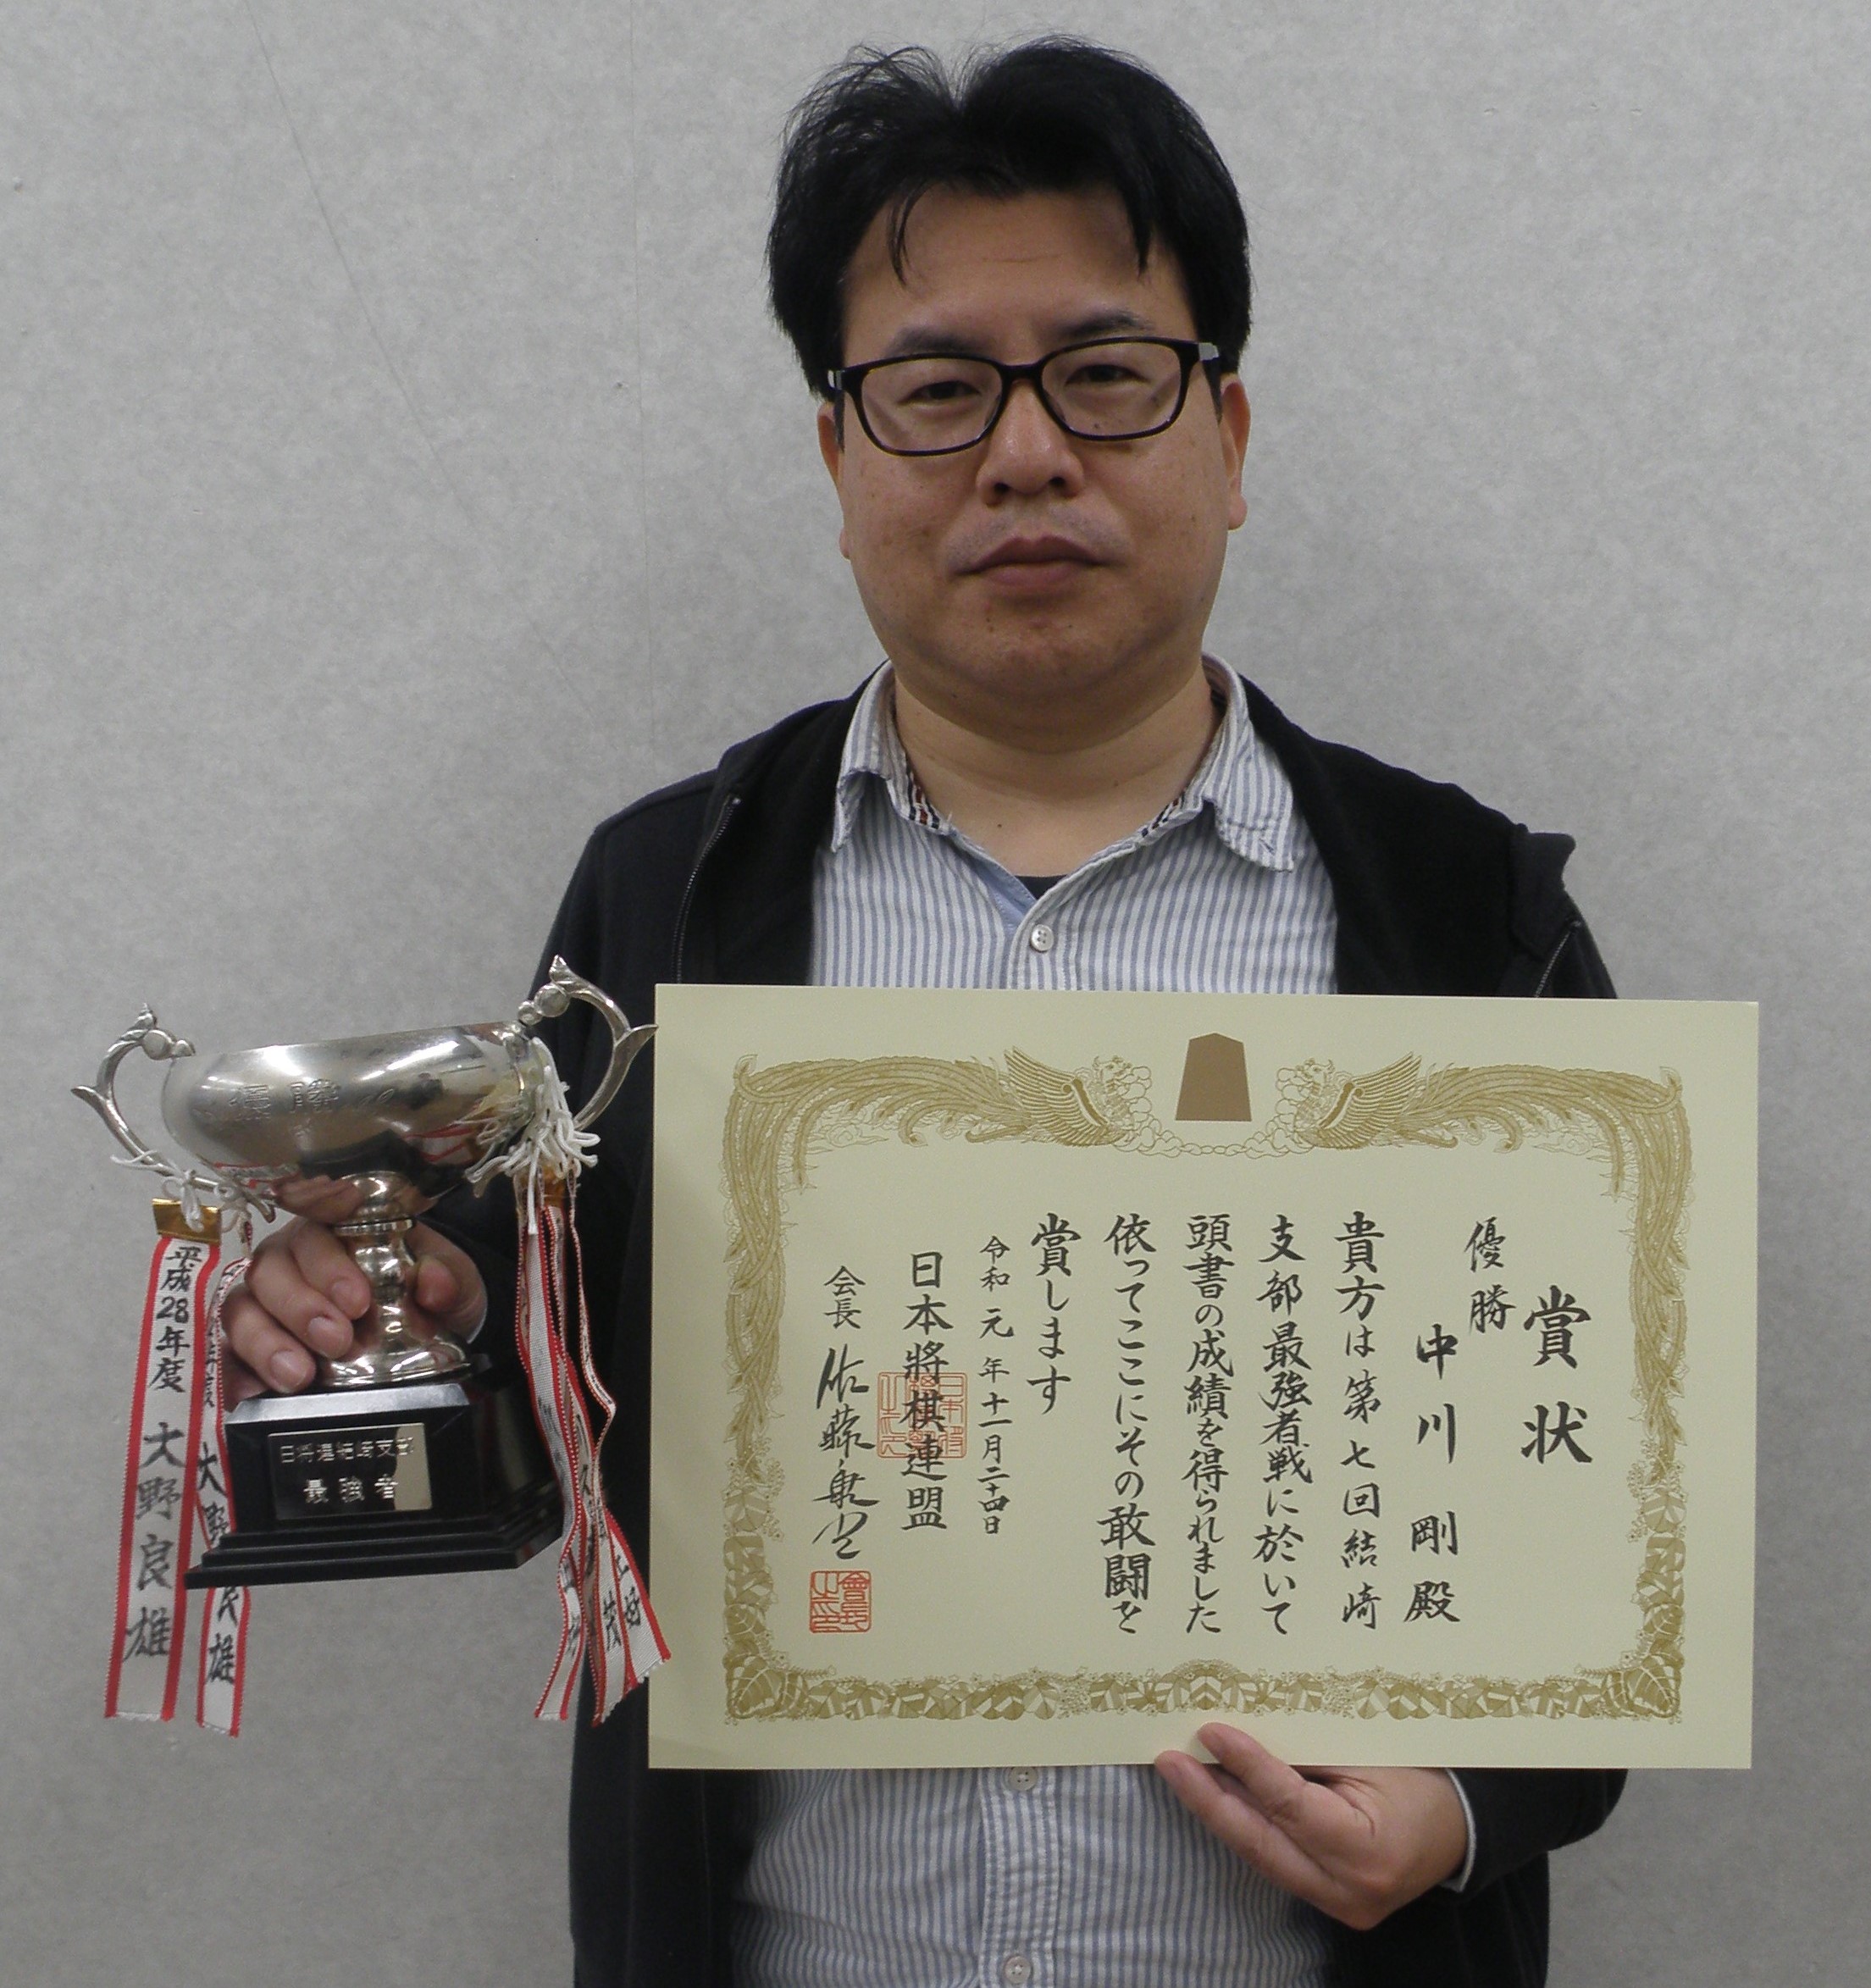 賞状
優勝
中川 剛 殿
貴方は第七回結崎
支部最強者戦に於いて
頭書の成績を得られました
依ってここにその敢闘を
賞します
令和 元 年 十一月二十四日
日本將棋連盟
会長 佐藤康光
會長之印
優勝
日将連結崎支部
最強者
平成28年度 大野良雄